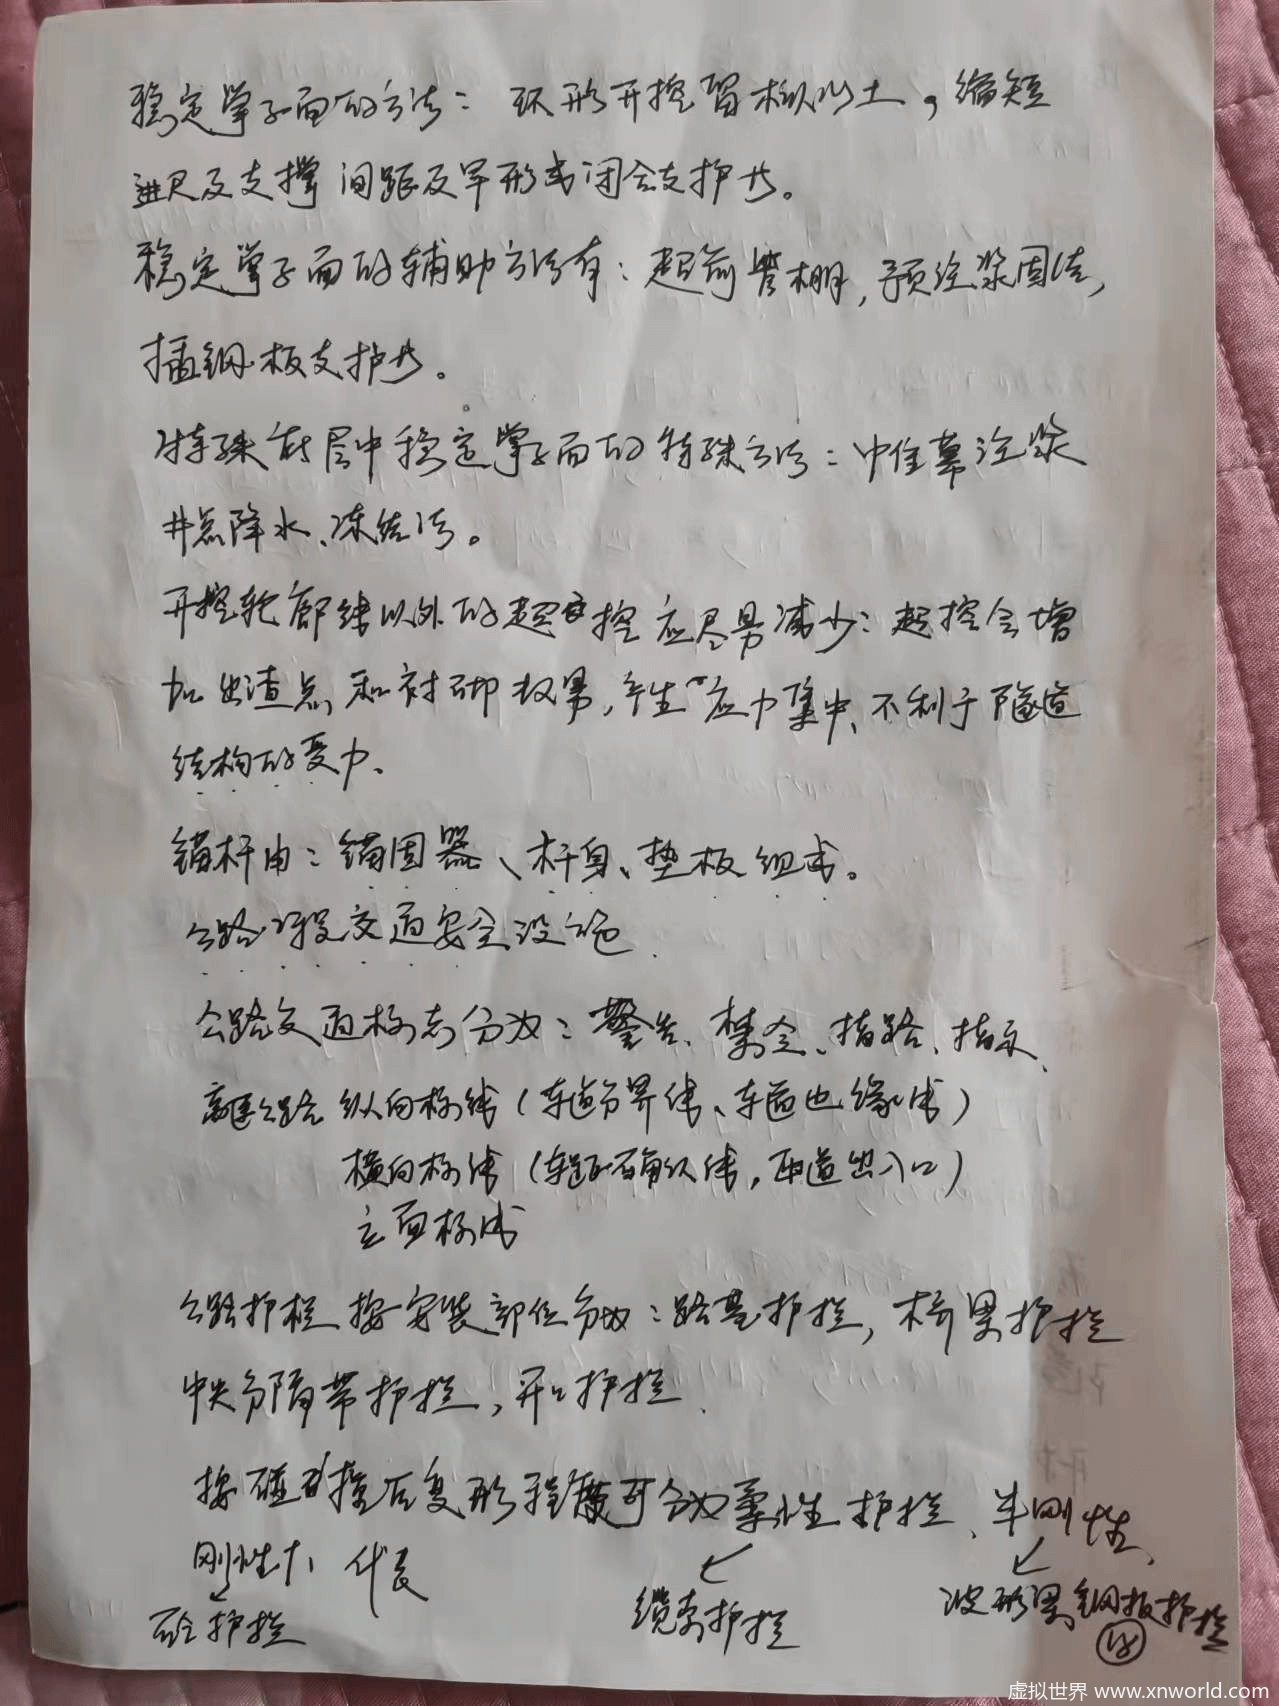 稳定掌子面的方法：环形开挖留核心土，缩短
进尺及支撑间距及早形成闭合支护等。
稳定掌子面的辅助方法有：超前管棚，预注浆固结，
插钢板支护等。
特殊地层中稳定掌子面的特殊方法：帷幕注浆
井点降水、冻结法。
开挖轮廓线以外的超挖应尽量减少：超挖会增
加出渣点和衬砌数量，产生应力集中、不利于隧道
结构的受力、
锚杆由：锚固器、杆身、垫板组成。
公路工程交通安全设施
公路交通标志分为：警告、禁令、指路、指示、
高速公路 纵向标线（车道分界线、车道边缘线）
横向标线（车距确认线，匝道出入口）
立面标线
公路护栏按安装部位分为：路基护栏，桥梁护栏
中央分隔带护栏，开口护栏
按碰撞后变形程度可分为柔性护栏、半刚性、
刚性 代表
砼护栏 缆索护栏 波形梁钢板护栏
18
虚拟世界 www.xnworld.com